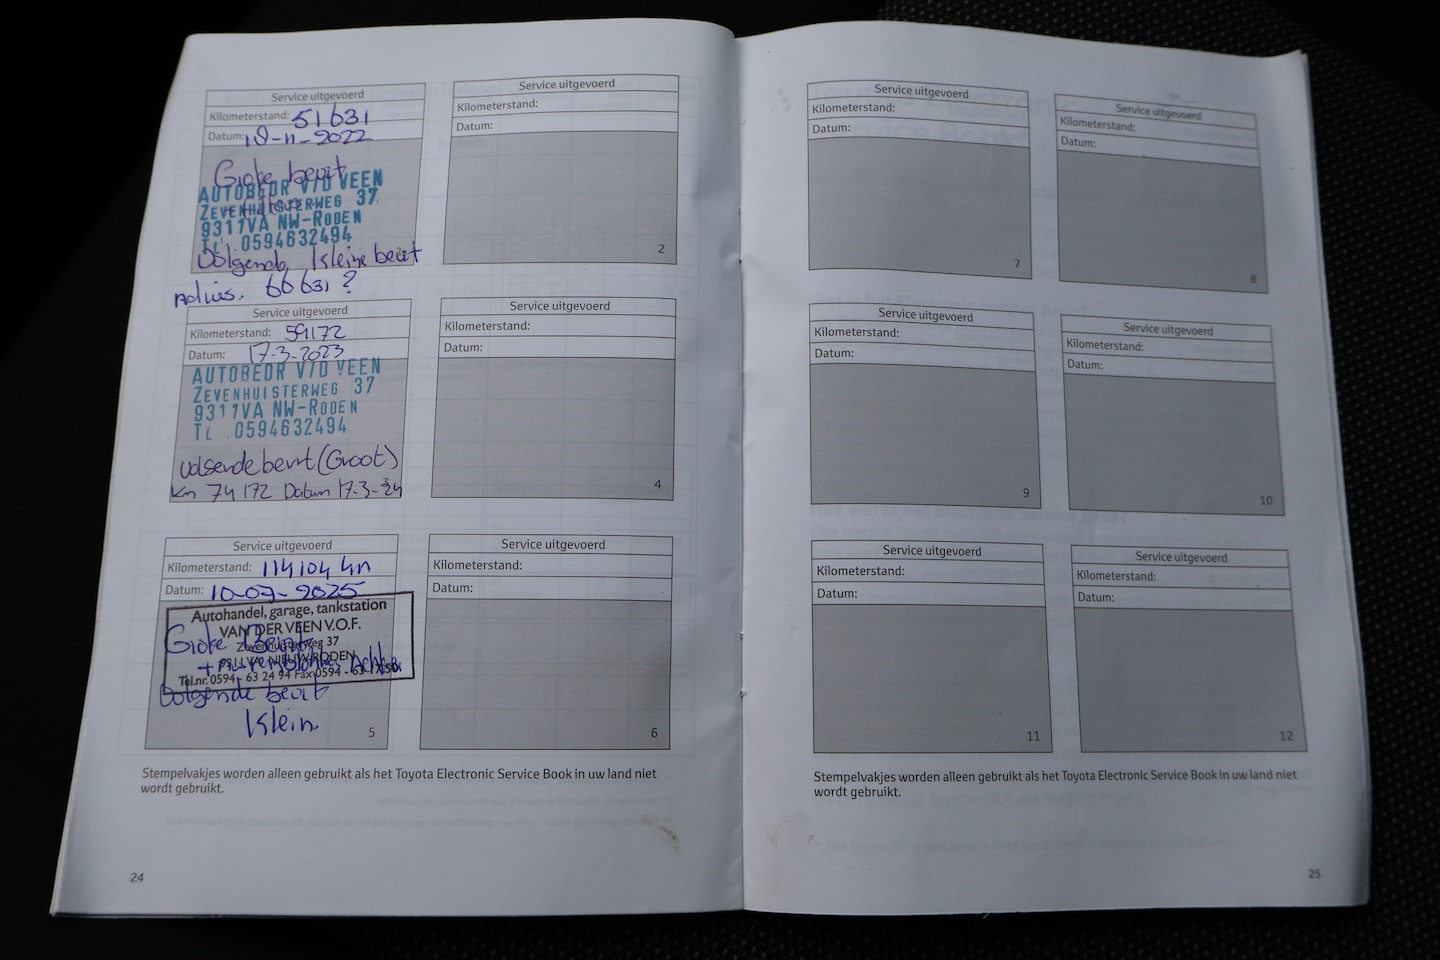 Service uitgevoerd
Kilometerstand: 51631
Datum: 18-11-2022
Grote beurt
AUTOBEDR V/D VEEN
ZEVENHUISTERWEG 37
9311VA NW-RODEN
TL . 0594632494
Volgende Kleine beurt
66631?
Service uitgevoerd
Kilometerstand:
Datum:
2
Service uitgevoerd
Kilometerstand: 59172
Datum: 17-3-2023
AUTOBEDR V/D VEEN
ZEVENHUISTERWEG 37
9311VA NW-RODEN
TL . 0594632494
volgende beurt (Groot)
km 74172 Datum 17-3-24
Service uitgevoerd
Kilometerstand:
Datum:
4
Service uitgevoerd
Kilometerstand: 114104 km
Datum: 10-07-2025
Autohandel, garage, tankstation
VAN DER VEEN V.O.F.
Zevenhuisterweg 37
9311 VA NIEUW-RODEN
Tel.nr. 0594 - 63 24 94 Fax 0594 - 63
Grote Beurt
Volgende beurt
Klein.
5
Service uitgevoerd
Kilometerstand:
Datum:
6
Stempelvakjes worden alleen gebruikt als het Toyota Electronic Service Book in uw land niet
wordt gebruikt.
24
Service uitgevoerd
Kilometerstand:
Datum:
7
Service uitgevoerd
Kilometerstand:
Datum:
8
Service uitgevoerd
Kilometerstand:
Datum:
9
Service uitgevoerd
Kilometerstand:
Datum:
10
Service uitgevoerd
Kilometerstand:
Datum:
11
Service uitgevoerd
Kilometerstand:
Datum:
12
Stempelvakjes worden alleen gebruikt als het Toyota Electronic Service Book in uw land niet
wordt gebruikt.
25